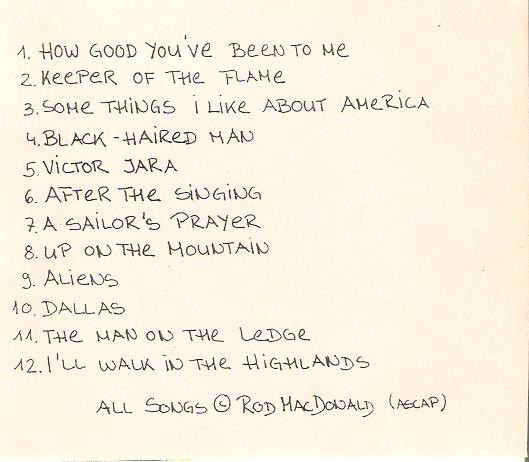 1. HOW GOOD YOU'VE BEEN TO ME
2. KEEPER OF THE FLAME
3. SOME THINGS I LIKE ABOUT AMERICA
4. BLACK-HAIRED MAN
5. VICTOR JARA
6. AFTER THE SINGING
7. A SAILOR'S PRAYER
8. UP ON THE MOUNTAIN
9. ALIENS
10. DALLAS
11. THE MAN ON THE LEDGE
12. I'LL WALK IN THE HIGHLANDS
ALL SONGS © ROD MACDONALD (ASCAP)